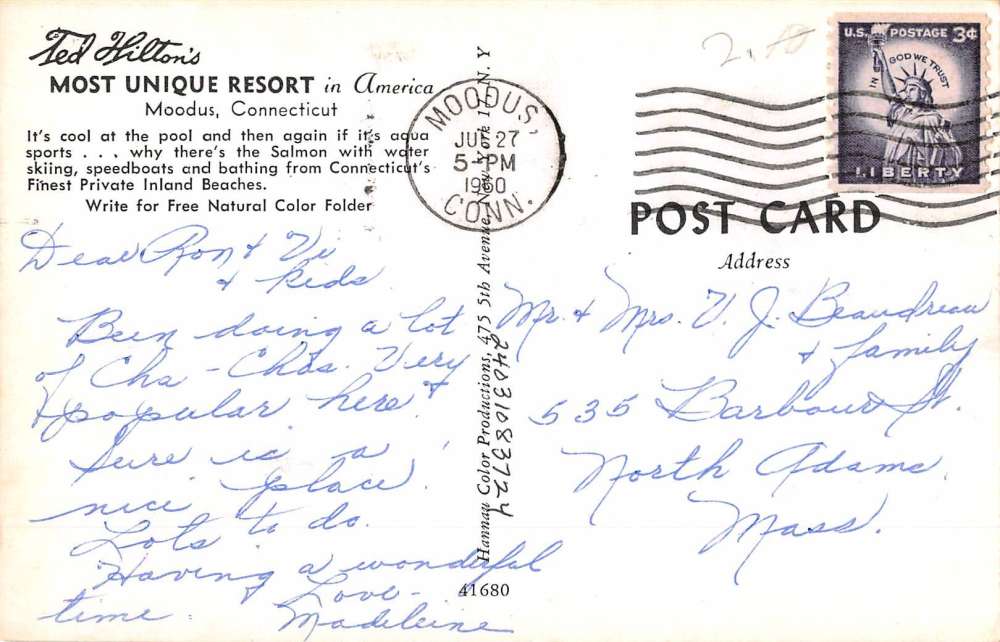 Ted Hilton's
MOST UNIQUE RESORT in America
Moodus, Connecticut
It's cool at the pool and then again if it's aqua
sports . . . why there's the Salmon with water
skiing, speedboats and bathing from Connecticut's
Finest Private Inland Beaches.
Write for Free Natural Color Folder
Dear Ron & Vi
& kids
Been doing a lot
of Cha-Chas. Very
popular here.
Sure is a
nice place!
Lots to do.
Having a wonderful
time.
Love-
Madeleine
Hannau Color Productions, 475 5th Avenue, New York 17, N. Y
2403108372
41680
MOODUS,
27
5-PM
1960
CONN.
2.
U.S. POSTAGE 3¢
IN GOD WE TRUST
LIBERTY
POST CARD
Address
Mr. & Mrs. V. J. Beaudreau
& family
535 Barbour St.
North Adams
Mass.